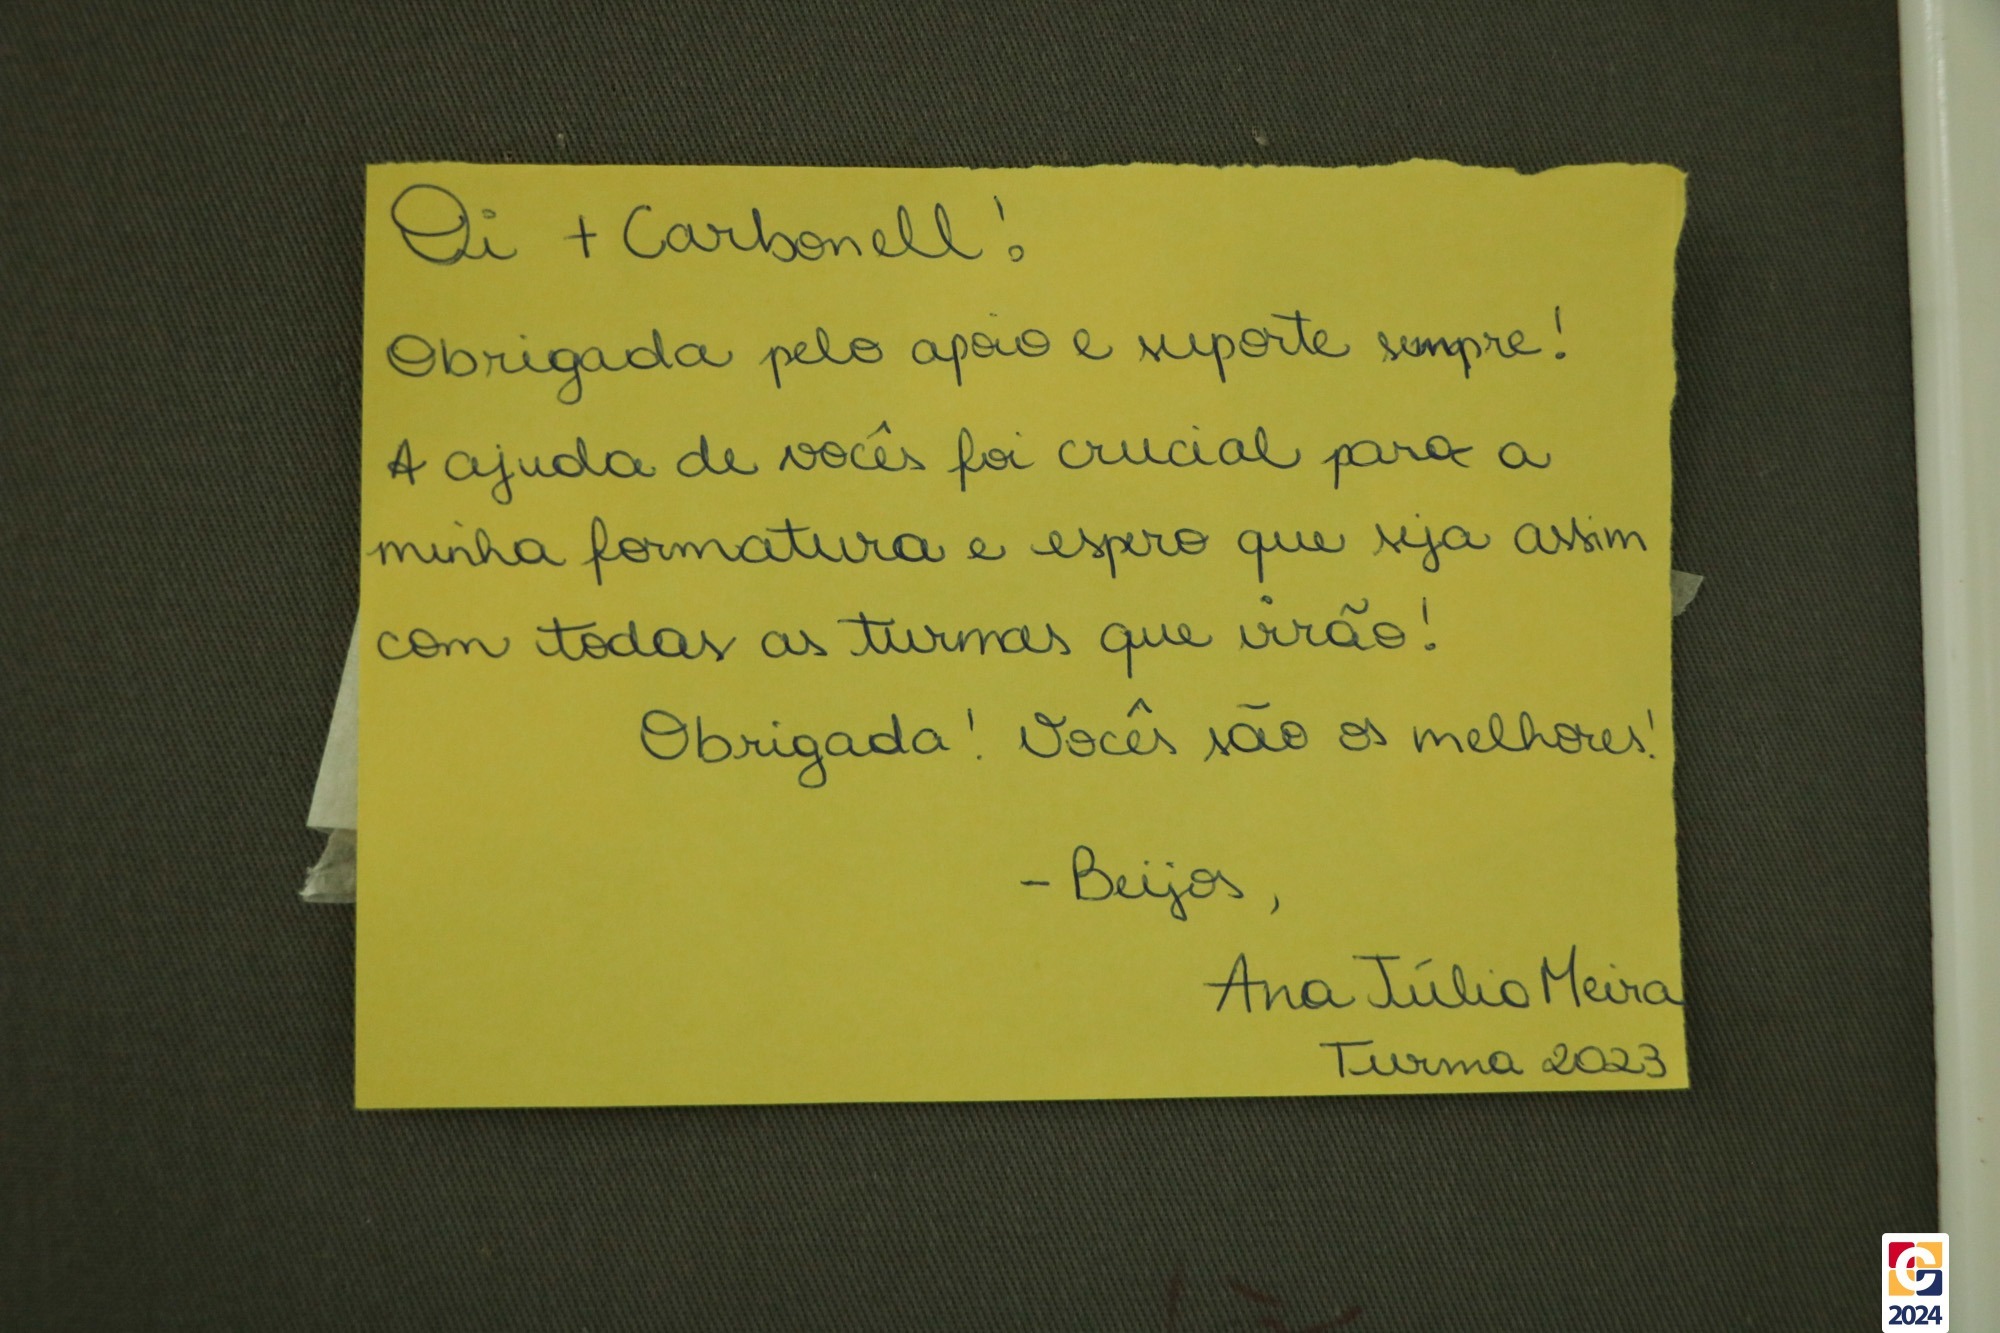 Oi + Carbonell!
Obrigada pelo apoio e suporte sempre!
A ajuda de vocês foi crucial para a
minha formatura e espero que seja assim
com todas as turmas que virão!
Obrigada! Vocês são os melhores!
- Beijos,
Ana Júlia Meira
Turma 2023
2024